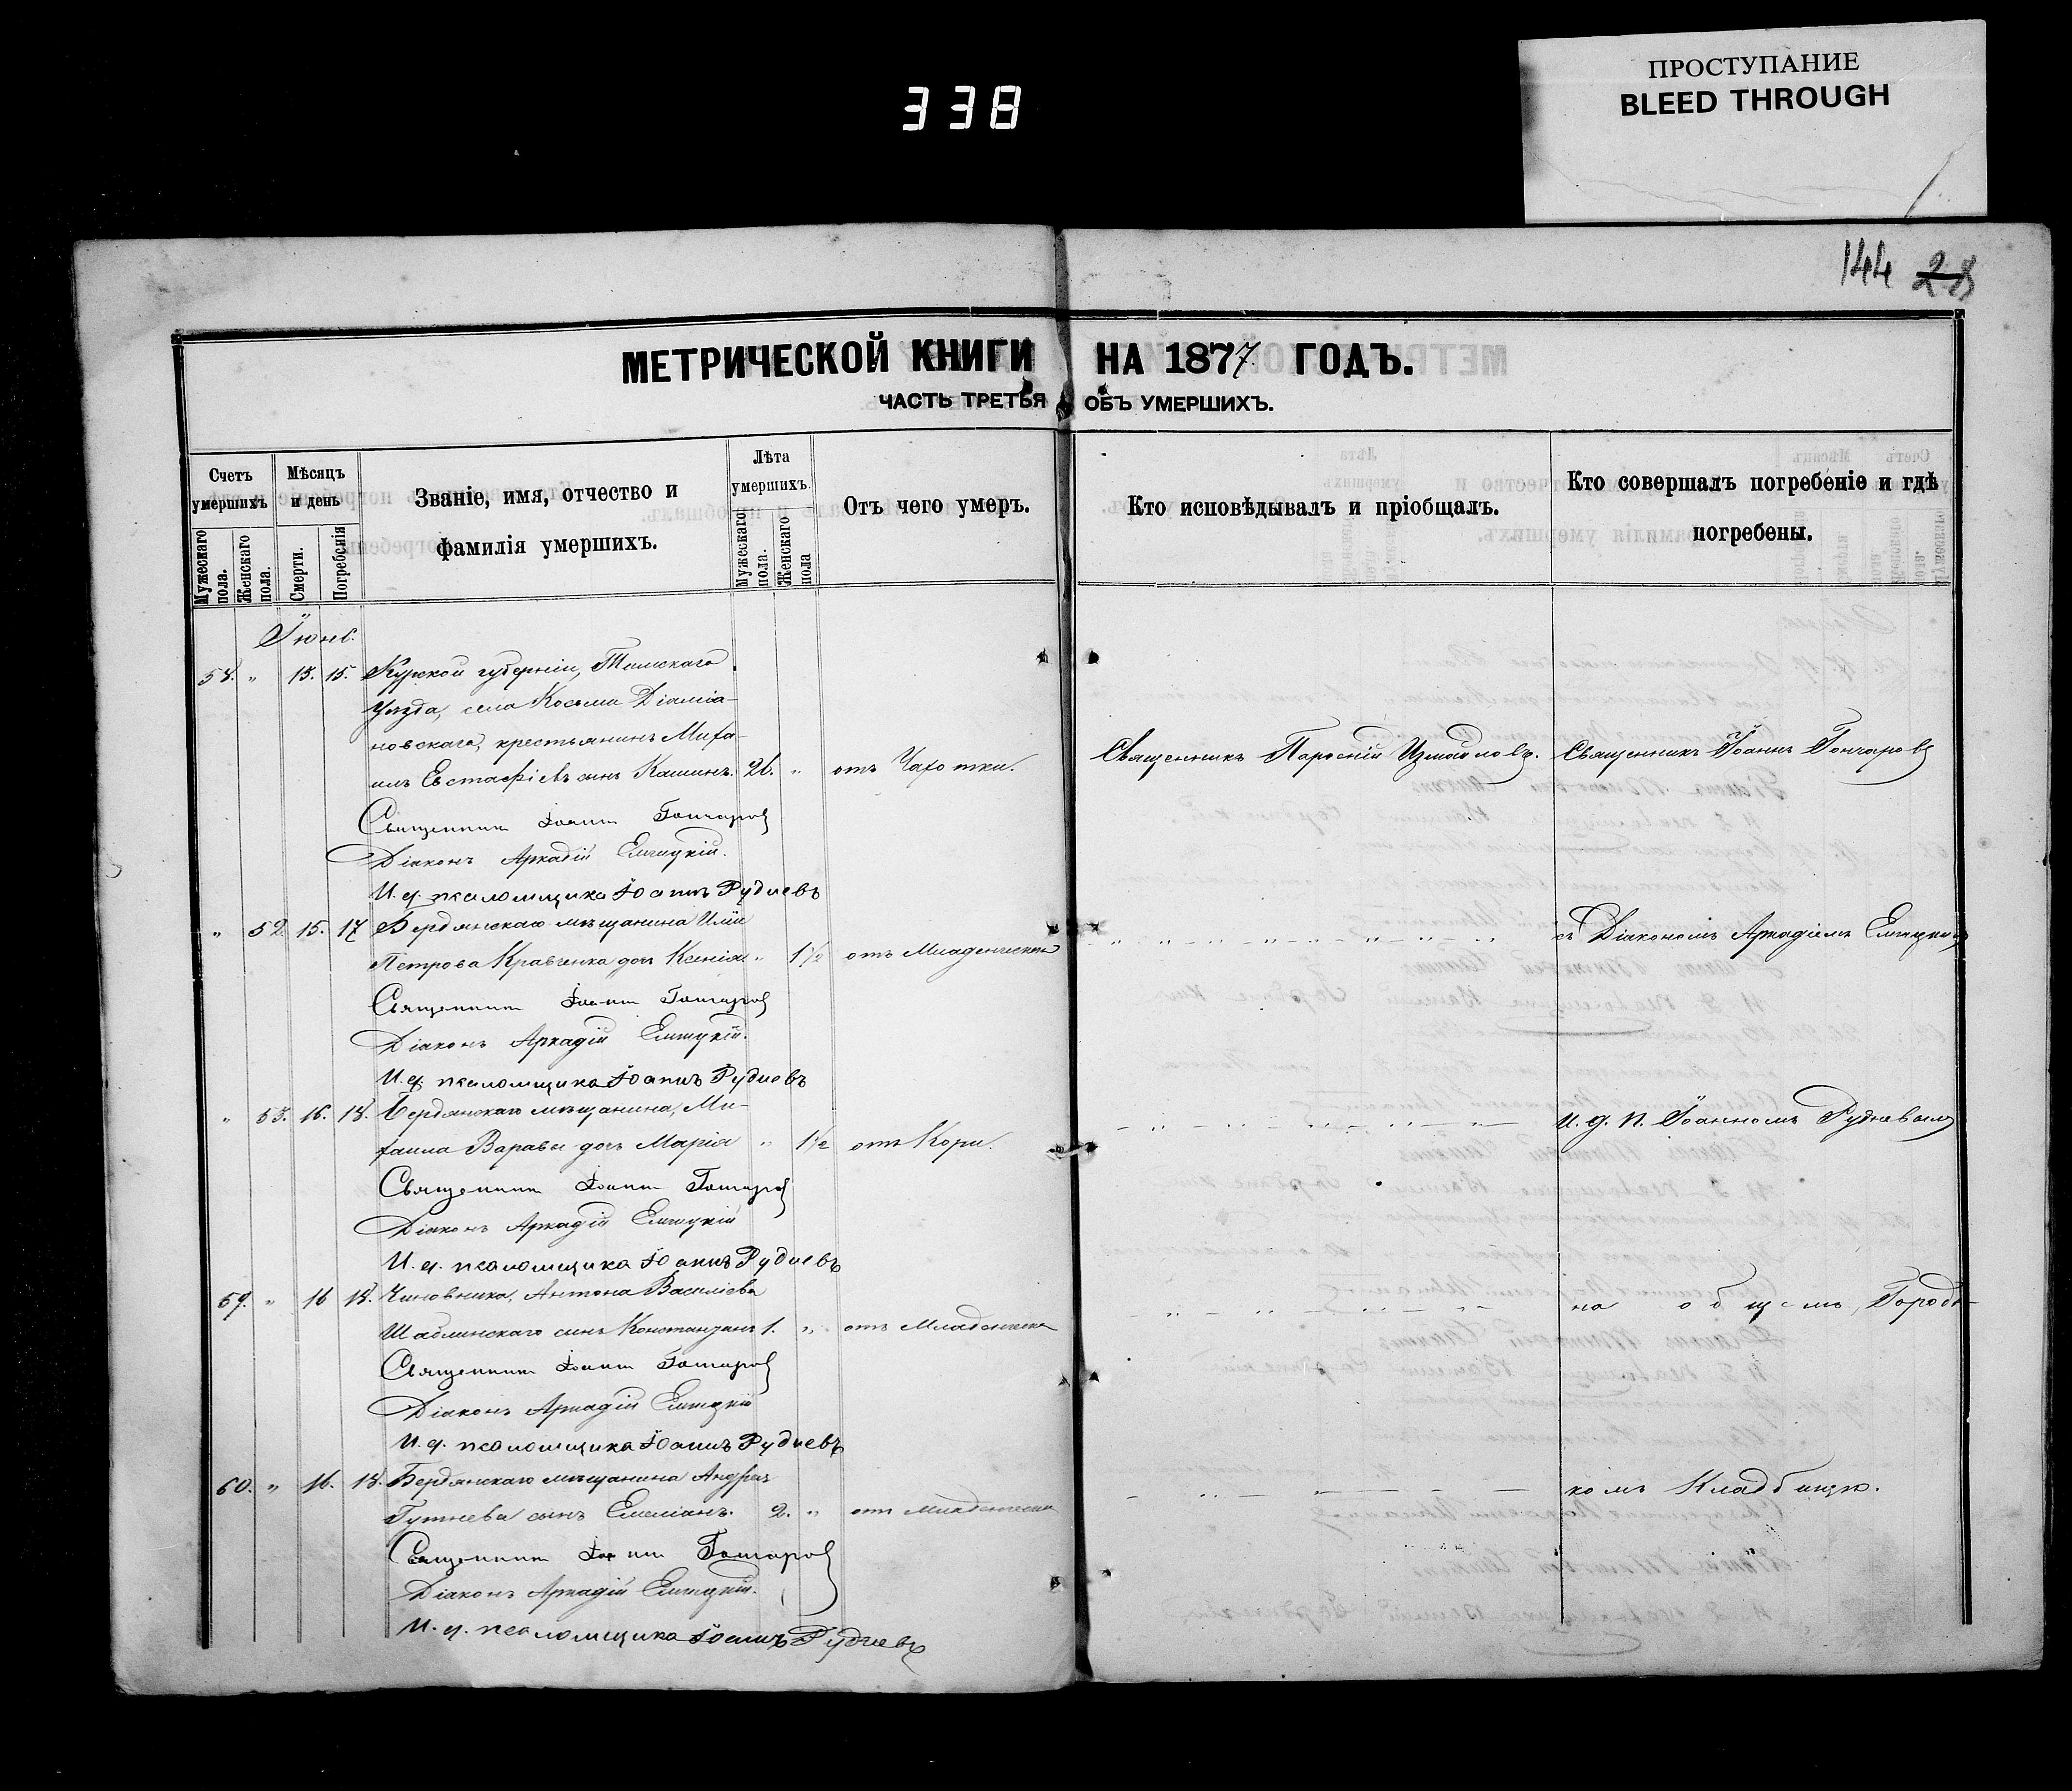 338
ПРОСТУПАНИЕ
BLEED THROUGH
144 28
МЕТРИЧЕСКОЙ КНИГИ НА 1877 ГОДЪ.
ЧАСТЬ ТРЕТЬЯ ОБЪ УМЕРШИХЪ.
Счетъ умершихъ
Мужескаго пола.
Женскаго пола.
Мѣсяцъ и день
Смерти.
Погребенія
Званіе, имя, отчество и фамилія умершихъ.
Лѣта умершихъ.
Мужескаго пола.
Женскаго пола
Отъ чего умеръ.
Кто исповѣдывалъ и пріобщалъ.
Кто совершалъ погребеніе и гдѣ погребены.
Іюнь.
58. " 13. 15. Курской губерніи, Тимскаго
Уѣзда, села Косьмо Даміа-
новскаго, крестьянинъ Миха-
илъ Евстафіевъ сынъ Кашинъ. 26. " отъ Чахотки. Священникъ Измайловъ. Священникъ Іоаннъ Гончаровъ
Священникъ Іоаннъ Гончаровъ
Діаконъ Аркадій
И. д. псаломщика Іоаннъ Рудневъ
" 52 15. 17 Бердянскаго мѣщанина Иліи
Петрова Кравченка дочь Ксенія " 1½ отъ Младенческой съ Діакономъ Аркадіемъ
Священникъ Іоаннъ Гончаровъ
Діаконъ Аркадій
И. д. псаломщика Іоаннъ Рудневъ
" 53. 16. 18. Бердянскаго мѣщанина, Ми-
хаила Варавы дочь Марія " 1½ отъ Кори. И. д. п. Іоанномъ Рудневымъ
Священникъ Іоаннъ Гончаровъ
Діаконъ Аркадій
И. д. псаломщика Іоаннъ Рудневъ
59. " 16 18. Чиновника, Антона Василіева
Шаблинскаго сынъ Константинъ 1. " отъ Младенческой на общемъ Городс-
Священникъ Іоаннъ Гончаровъ
Діаконъ Аркадій
И. д. псаломщика Іоаннъ Рудневъ
60. " 16. 18. Бердянскаго мѣщанина Андрея
сынъ Емеліанъ. 2. " отъ Младенческой комъ Кладбищѣ.
Священникъ Іоаннъ Гончаровъ
Діаконъ Аркадій
И. д. псаломщика Іоаннъ Рудневъ